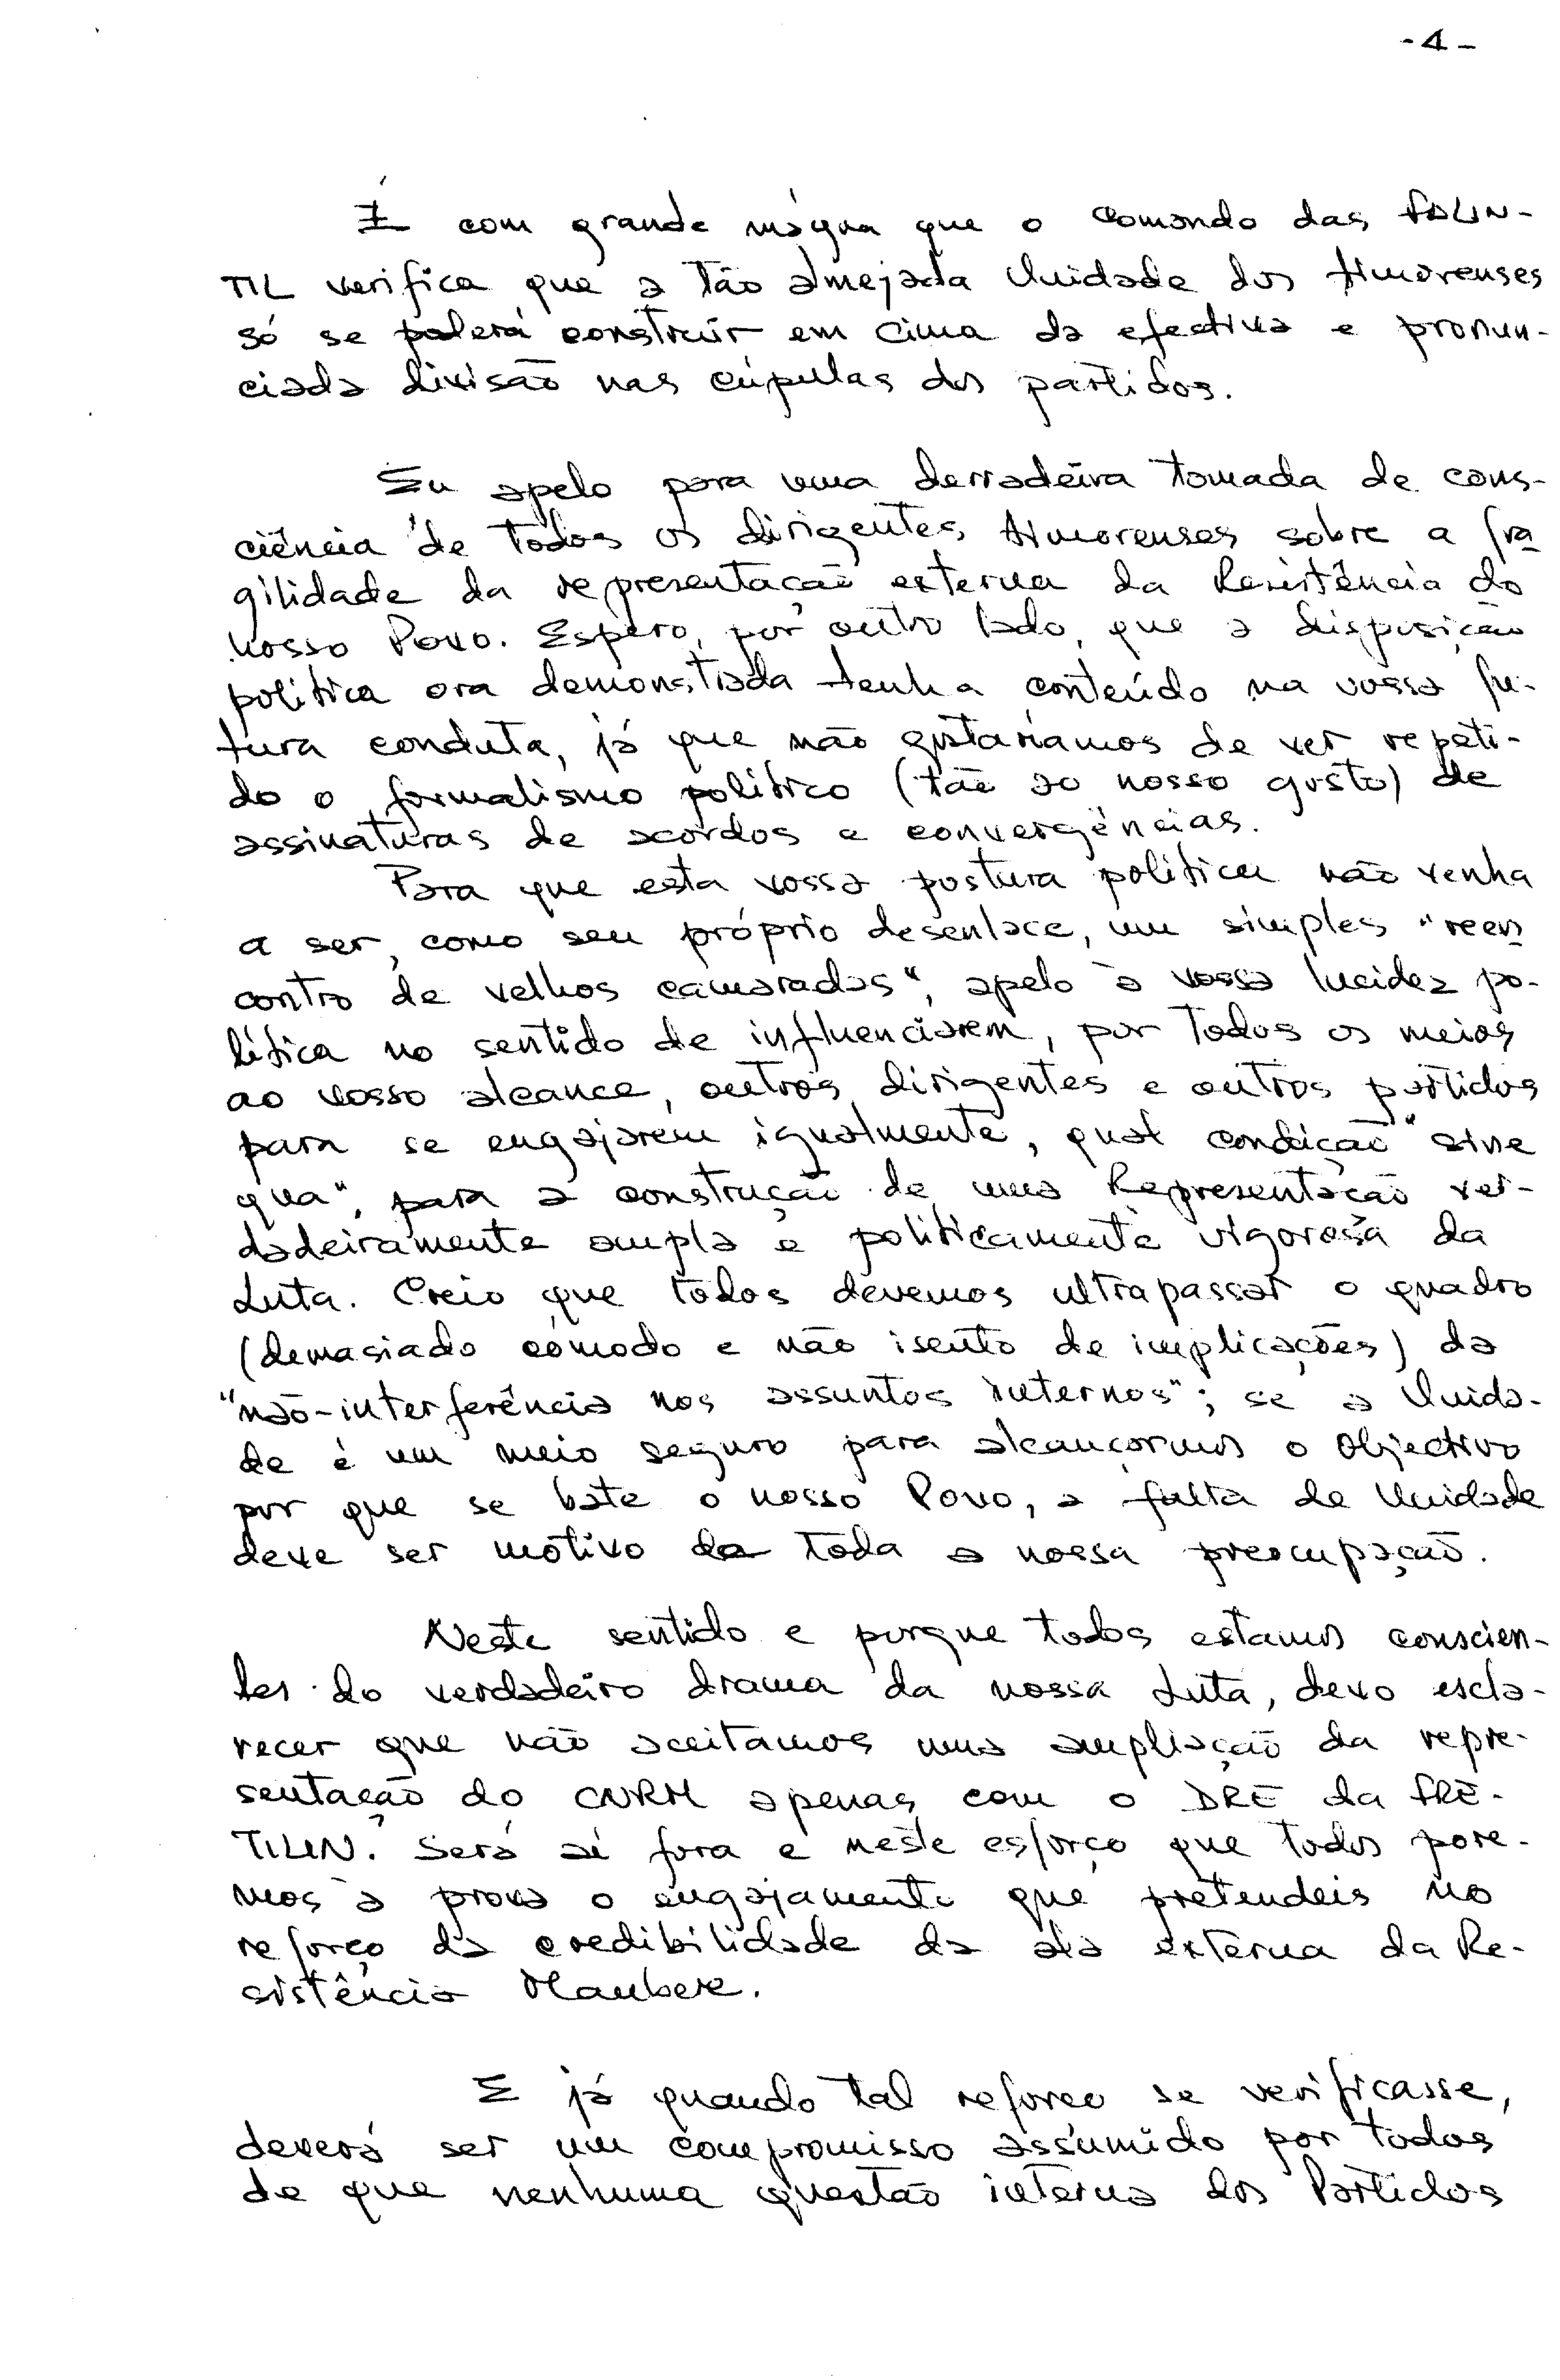 -4-
É com grande mágua que o Comando das FALIN-
TIL verifica que a tão almejada Unidade dos timorenses
só se poderá construir em cima da efectiva e pronun-
ciada divisão nas cúpulas dos partidos.
Eu apelo para uma derradeira tomada de cons-
ciência de todos os dirigentes timorenses sobre a fra
gilidade da representação externa da Resistência do
nosso Povo. Espero, por outro lado, que a disposição
política ora demonstrada tenha conteúdo na vossa fu-
tura conduta, já que não gostaríamos de ver repeti-
do o formalismo político (tão ao nosso gosto) de
assinaturas de acordos e convergências.
Para que esta vossa postura política não venha
a ser, como seu próprio desenlace, um simples "reen
contro de velhos camaradas", apelo à vossa lucidez po-
lítica no sentido de influenciarem, por todos os meios
ao vosso alcance, outros dirigentes e outros partidos
para se engajarem igualmente, qual condição "sine
qua", para a construção de uma Representação ver-
dadeiramente ampla e politicamente vigorosa da
Luta. Creio que todos devemos ultrapassar o quadro
(demasiado cómodo e não isento de implicações) da
"não-interferência nos assuntos internos"; se a Unida-
de é um meio seguro para alcançarmos o Objectivo
por que se bate o nosso Povo, a falta de Unidade
deve ser motivo de toda a nossa preocupação.
Neste sentido e porque todos estamos conscien-
tes do verdadeiro drama da nossa Luta, devo escla-
recer que não aceitamos uma ampliação da repre-
sentação do CNRM apenas com o DRE da FRE-
TILIN. Será aí fora e neste esforço que todos pore-
mos à prova o engajamento que pretendeis no
reforço da credibilidade da ala externa da Re-
sistência Maubere.
E já quando tal reforço se verificasse,
deverá ser um compromisso assumido por todos
de que nenhuma questão interna dos Partidos